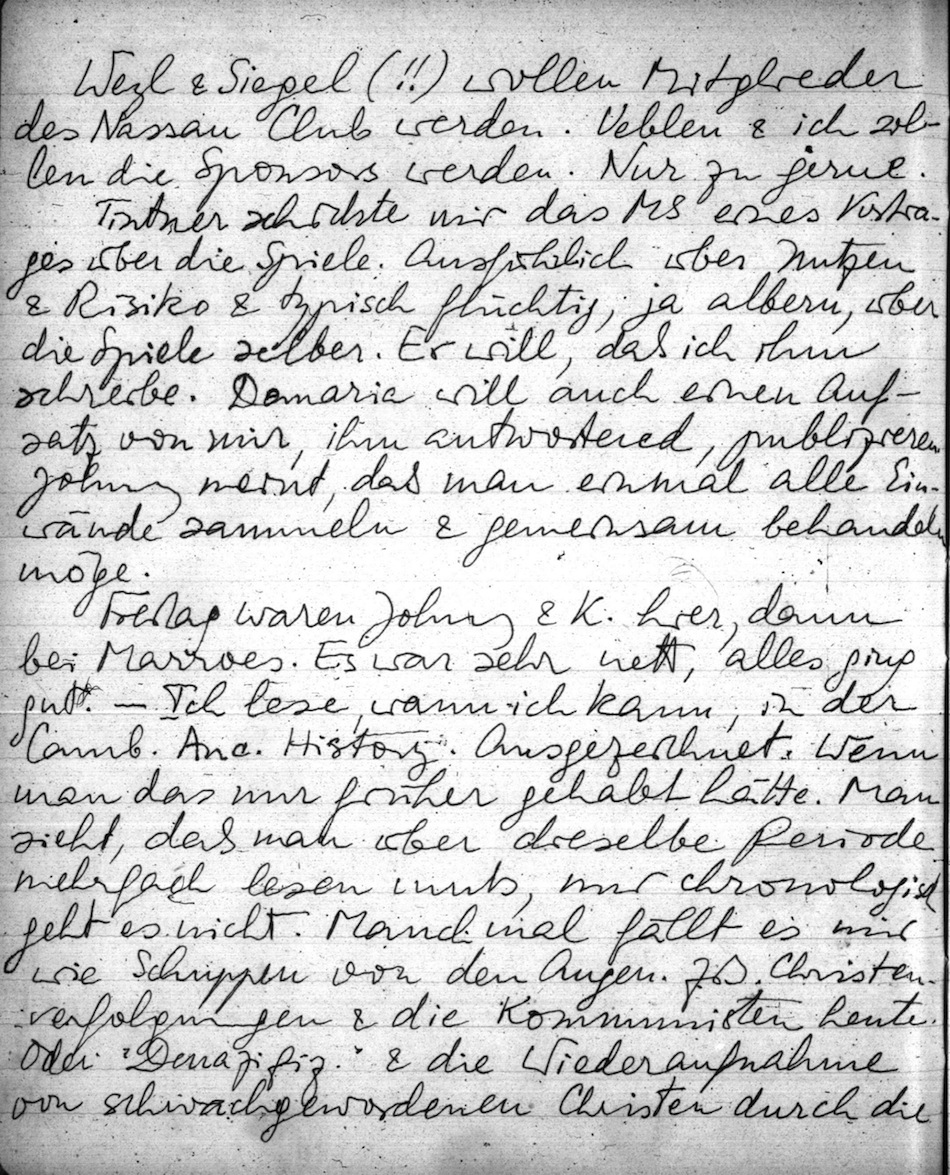 Weyl & Siegel (!!) wollen Mitglieder
des Nassau Club werden. Veblen & ich sol-
len die Sponsors werden. Nur zu gerne.
Tintner schickte mir das MS eines Vortra-
ges über die Spiele. Ausführlich über Nutzen
& Risiko & typisch flüchtig, ja albern, über
die Spiele selber. Er will, daß ich ihm
schreibe. Demaria will auch einen Auf-
satz von mir, ihm antwortend, publizieren
Johnny meint, daß man einmal alle Ein-
wände sammeln & gemeinsam behandeln
möge.
Freitag waren Johnny & K. hier, dann
bei Marroes. Es war sehr nett, alles ging
gut. — Ich lese, wann ich kann, in der
Camb. Anc. History. Ausgezeichnet. Wenn
man das nur früher gehabt hätte. Man
sieht, daß man über dieselbe Periode
mehrfach lesen muß, nur chronologisch
geht es nicht. Manchmal fällt es mir
wie Schuppen von den Augen. ZB. Christen-
verfolgungen & die Kommunisten heute.
Oder "Denazifiz." & die Wiederaufnahme
von schwachgewordenen Christen durch die